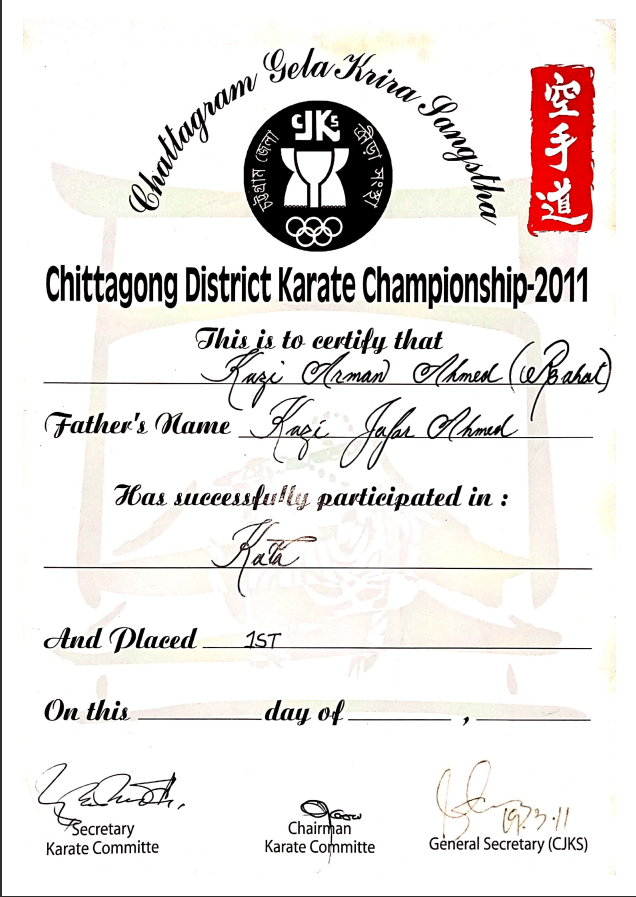 Chattagram Gela Krira Sangstha
CJKS
চট্টগ্রাম জেলা ক্রীড়া সংস্থা
空手道
Chittagong District Karate Championship-2011
This is to certify that
Kazi Arman Ahmed (Rahat)
Father's Name Kazi Jafar Ahmed
Has successfully participated in :
Kata
And Placed 1ST
On this day of ,
19.3.11
Secretary Chairman General Secretary (CJKS)
Karate Committe Karate Committe